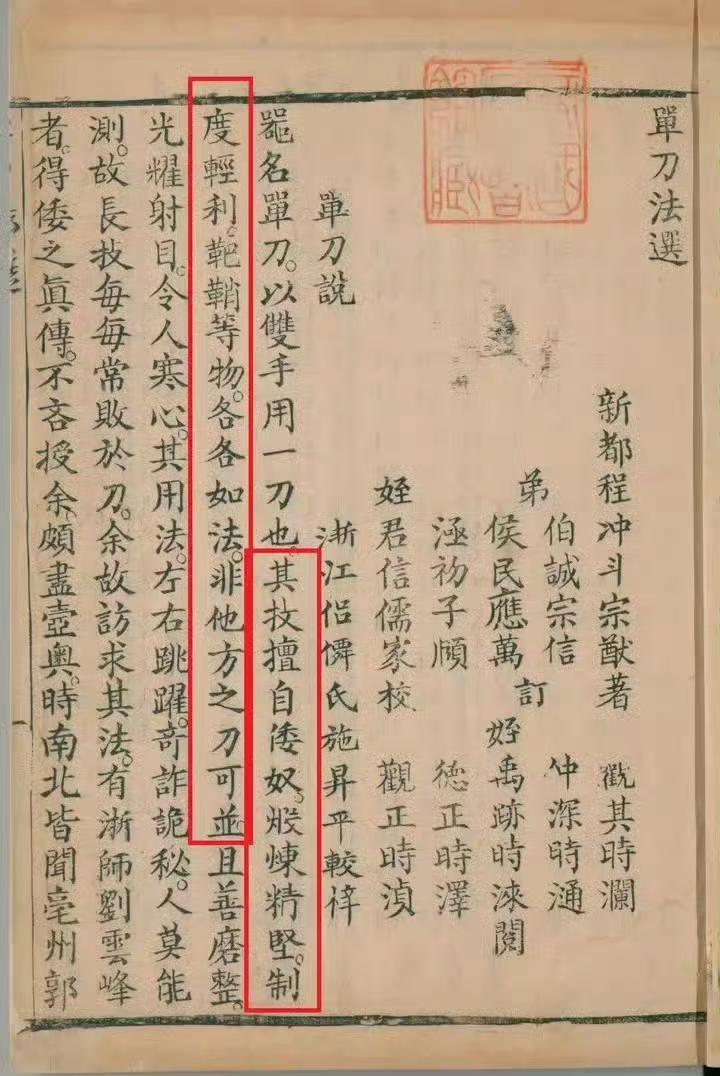 單刀法選
新都程冲斗宗猷著
觀其時瀾
伯誠宗信
仲深時通
弟
侯民應萬
訂
姪禹跡時淶閱
涵初子頤
德正時澤
姪君信儒家校
觀正時湞
浙江侶僲氏施昇平較梓
單刀說
噐名單刀。以雙手用一刀也。其技擅自倭奴。煅煉精堅。制
度輕利。靶鞘等物。各各如法。非他方之刀可並。且善磨整。
光耀射目。令人寒心。其用法。左右跳躍。奇詐詭秘。人莫能
測。故長技每每常敗於刀。余故訪求其法。有浙師劉雲峰
者。得倭之眞傳。不吝授余。頗盡壺奥。時南北皆聞亳州郭